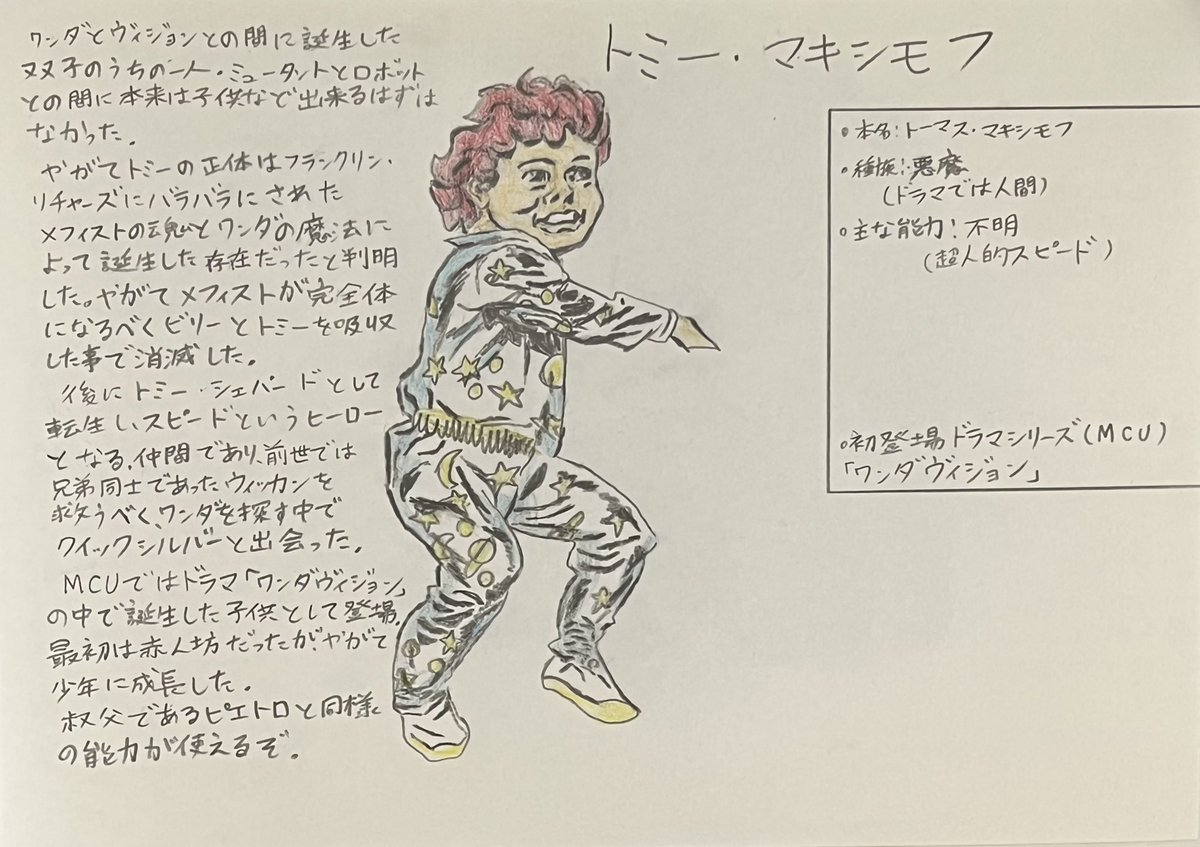 トミー・マキシモフ
ワンダとヴィジョンとの間に誕生した
双子のうちの一人・ミュータントとロボット
との間に本来は子供など出来るはずは
なかった。
やがてトミーの正体はフランクリン・
リチャーズにバラバラにされた
メフィストの魂とワンダの魔法に
よって誕生した存在だったと判明
した。やがてメフィストが完全体
になるべくビリーとトミーを吸収
した事で消滅した。
後にトミー・シェパードとして
転生し、スピードというヒーロー
となる。仲間であり、前世では
兄弟同士であったウィッカンを
救うべく、ワンダを探す中で
クイックシルバーと出会った。
MCUではドラマ「ワンダヴィジョン」
の中で誕生した子供として登場。
最初は赤ん坊だったが、やがて
少年に成長した。
叔父であるピエトロと同様
の能力が使えるぞ。
・本名:トーマス・マキシモフ
・種族:悪魔
(ドラマでは人間)
・主な能力:不明
(超人的スピード)
・初登場ドラマシリーズ(MCU)
「ワンダヴィジョン」